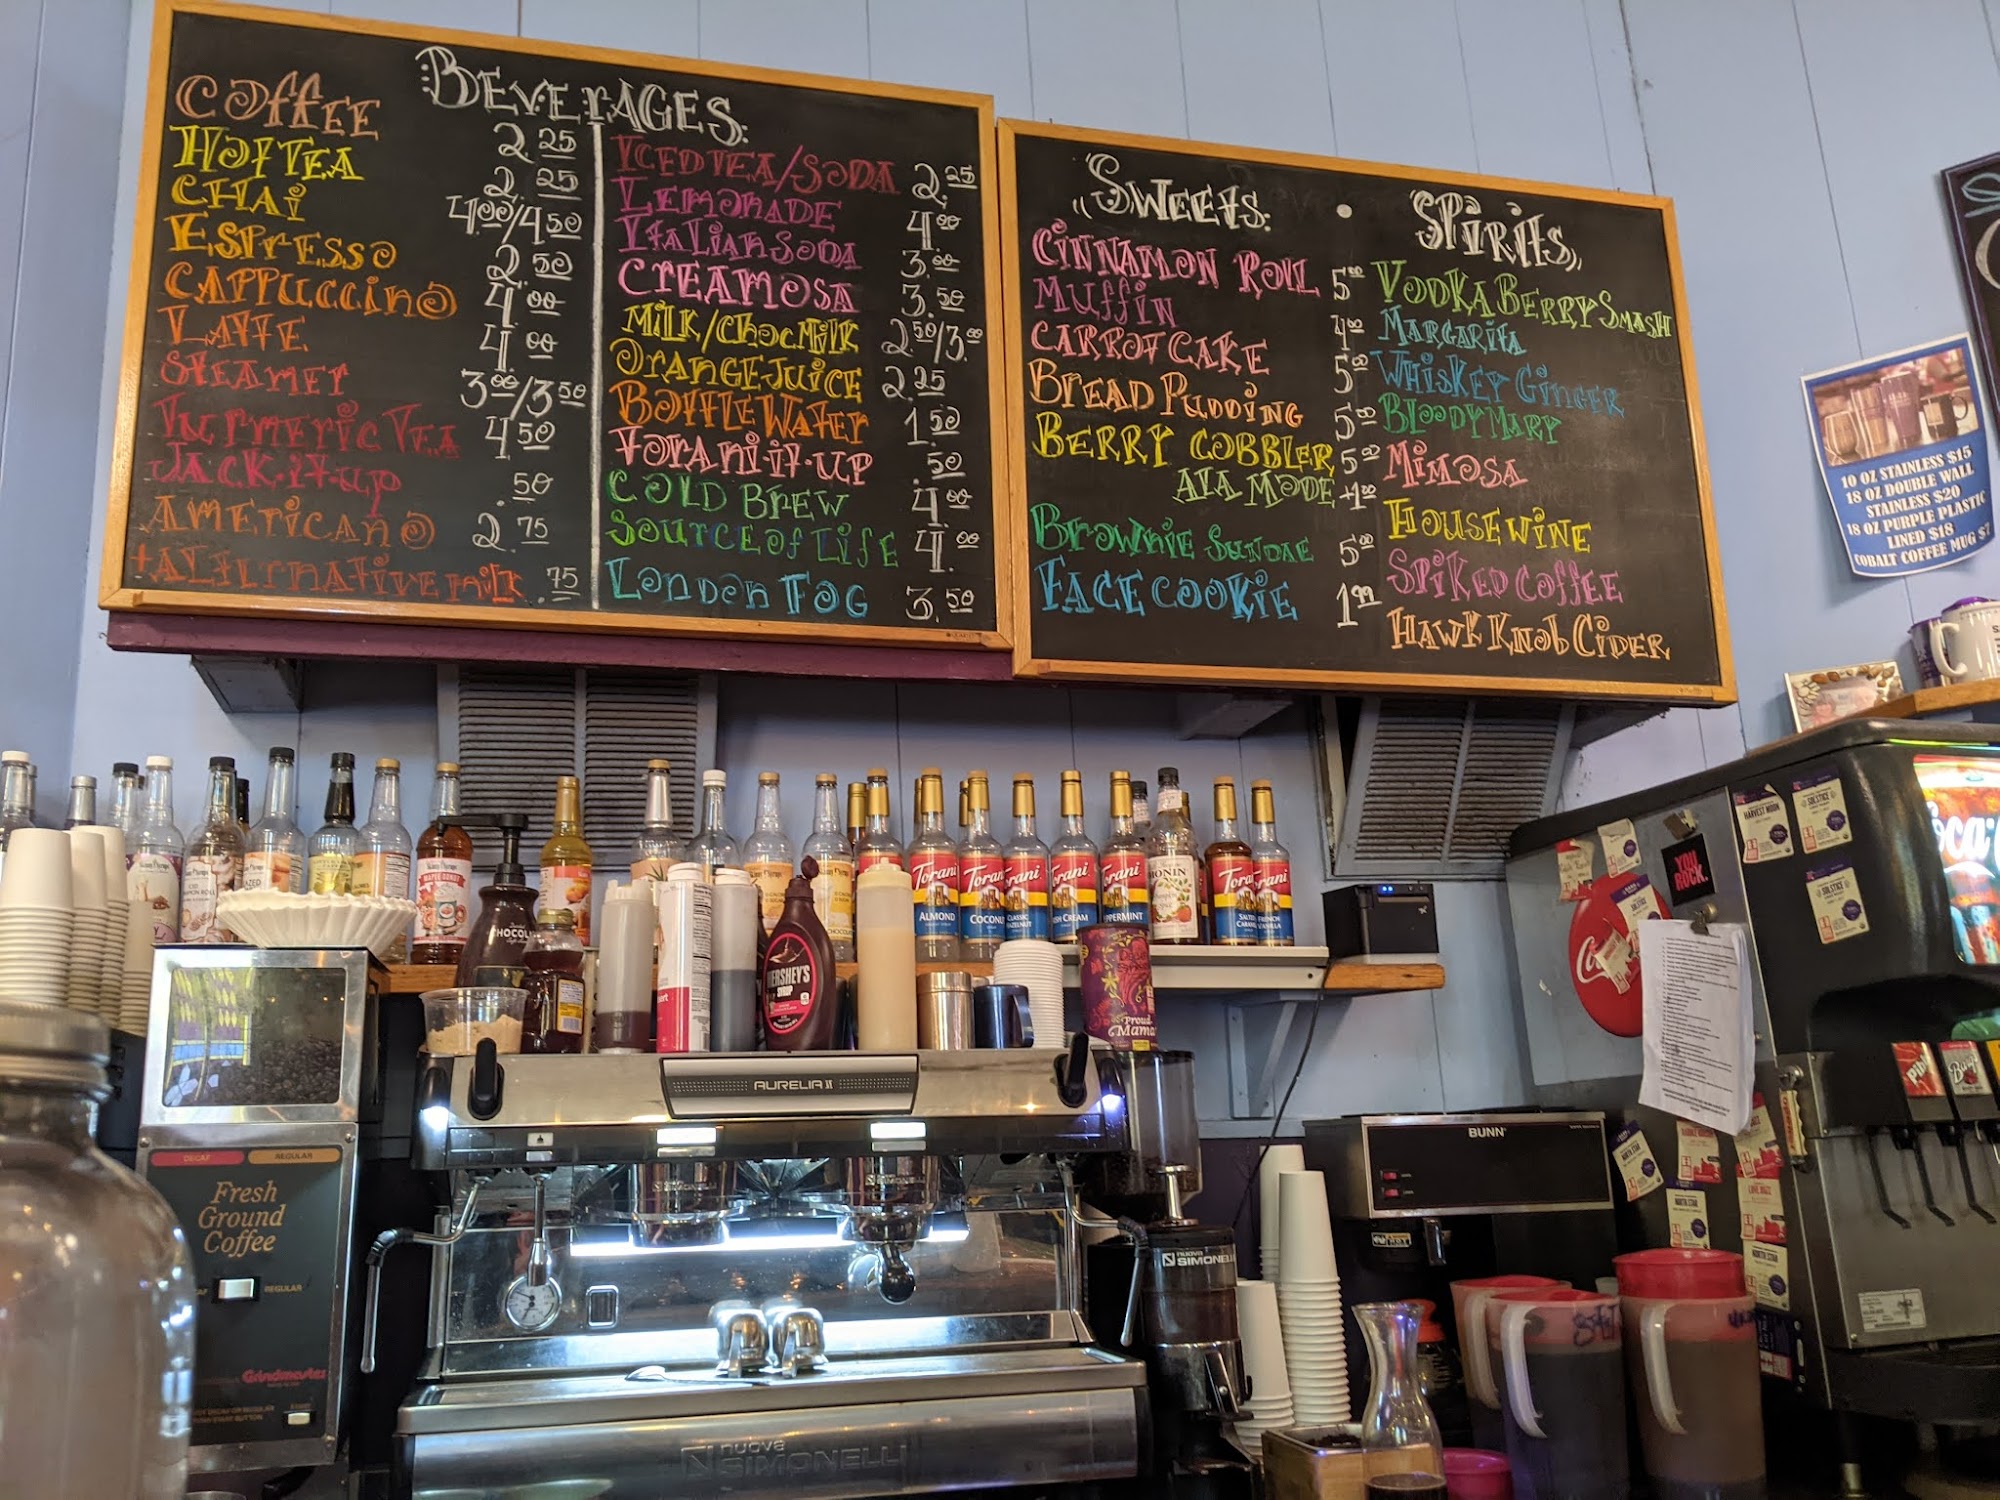 Beverages.
Coffee 2.25
Hot Tea 2.25
Chai 4.00/4.50
Espresso 2.50
Cappuccino 4.00
Latte 4.00
Steamer 3.00/3.50
Turmeric Tea 4.50
Jack-it-up .50
Americano 2.75
+Alternative milk .75
Iced Tea/Soda 2.25
Lemonade 4.00
Italian Soda 3.00
Creamosa 3.50
Milk/Choc Milk 2.50/3.00
Orange Juice 2.25
Bottle Water 1.50
Torani-it-up .50
Cold Brew 4.00
Source of Life 4.00
London Fog 3.50
"Sweets.
Cinnamon Roll 5.00
Muffin 4.00
Carrot Cake 5.00
Bread Pudding 5.00
Berry Cobbler 5.00
Ala Mode +1.00
Brownie Sundae 5.00
Face Cookie 1.99
Spirits"
Vodka Berry Smash
Margarita
Whiskey Ginger
Bloody Mary
Mimosa
House Wine
Spiked Coffee
Hawk Knob Cider
10 OZ STAINLESS $15
18 OZ DOUBLE WALL
STAINLESS $20
18 OZ PURPLE PLASTIC
LINED $18
COBALT COFFEE MUG $7
Torani
ALMOND
Torani
COCONUT
Torani
CLASSIC
HAZELNUT
Torani
Torani
PEPPERMINT
MONIN
Torani
Torani
HERSHEY'S
SYRUP
Proud
Mama
AURELIA II
DECAF
REGULAR
Fresh
Ground
Coffee
REGULAR
Grindmaster
nuova
SIMONELLI
nuova
SIMONELLI
BUNN
YOU
ROCK.
HARVEST MOON
SOLSTICE
SOLSTICE
NORTH STAR
Coca-Cola
Pibb
Barq's